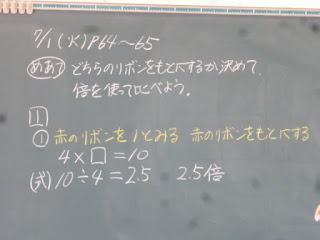 7/1(火)P64〜65
めあて どちらのリボンをもとにするか決めて、
倍を使って比べよう。
1
① 赤のリボンを1とみる 赤のリボンをもとにする
4×□=10
(式)10÷4=2.5 2.5倍